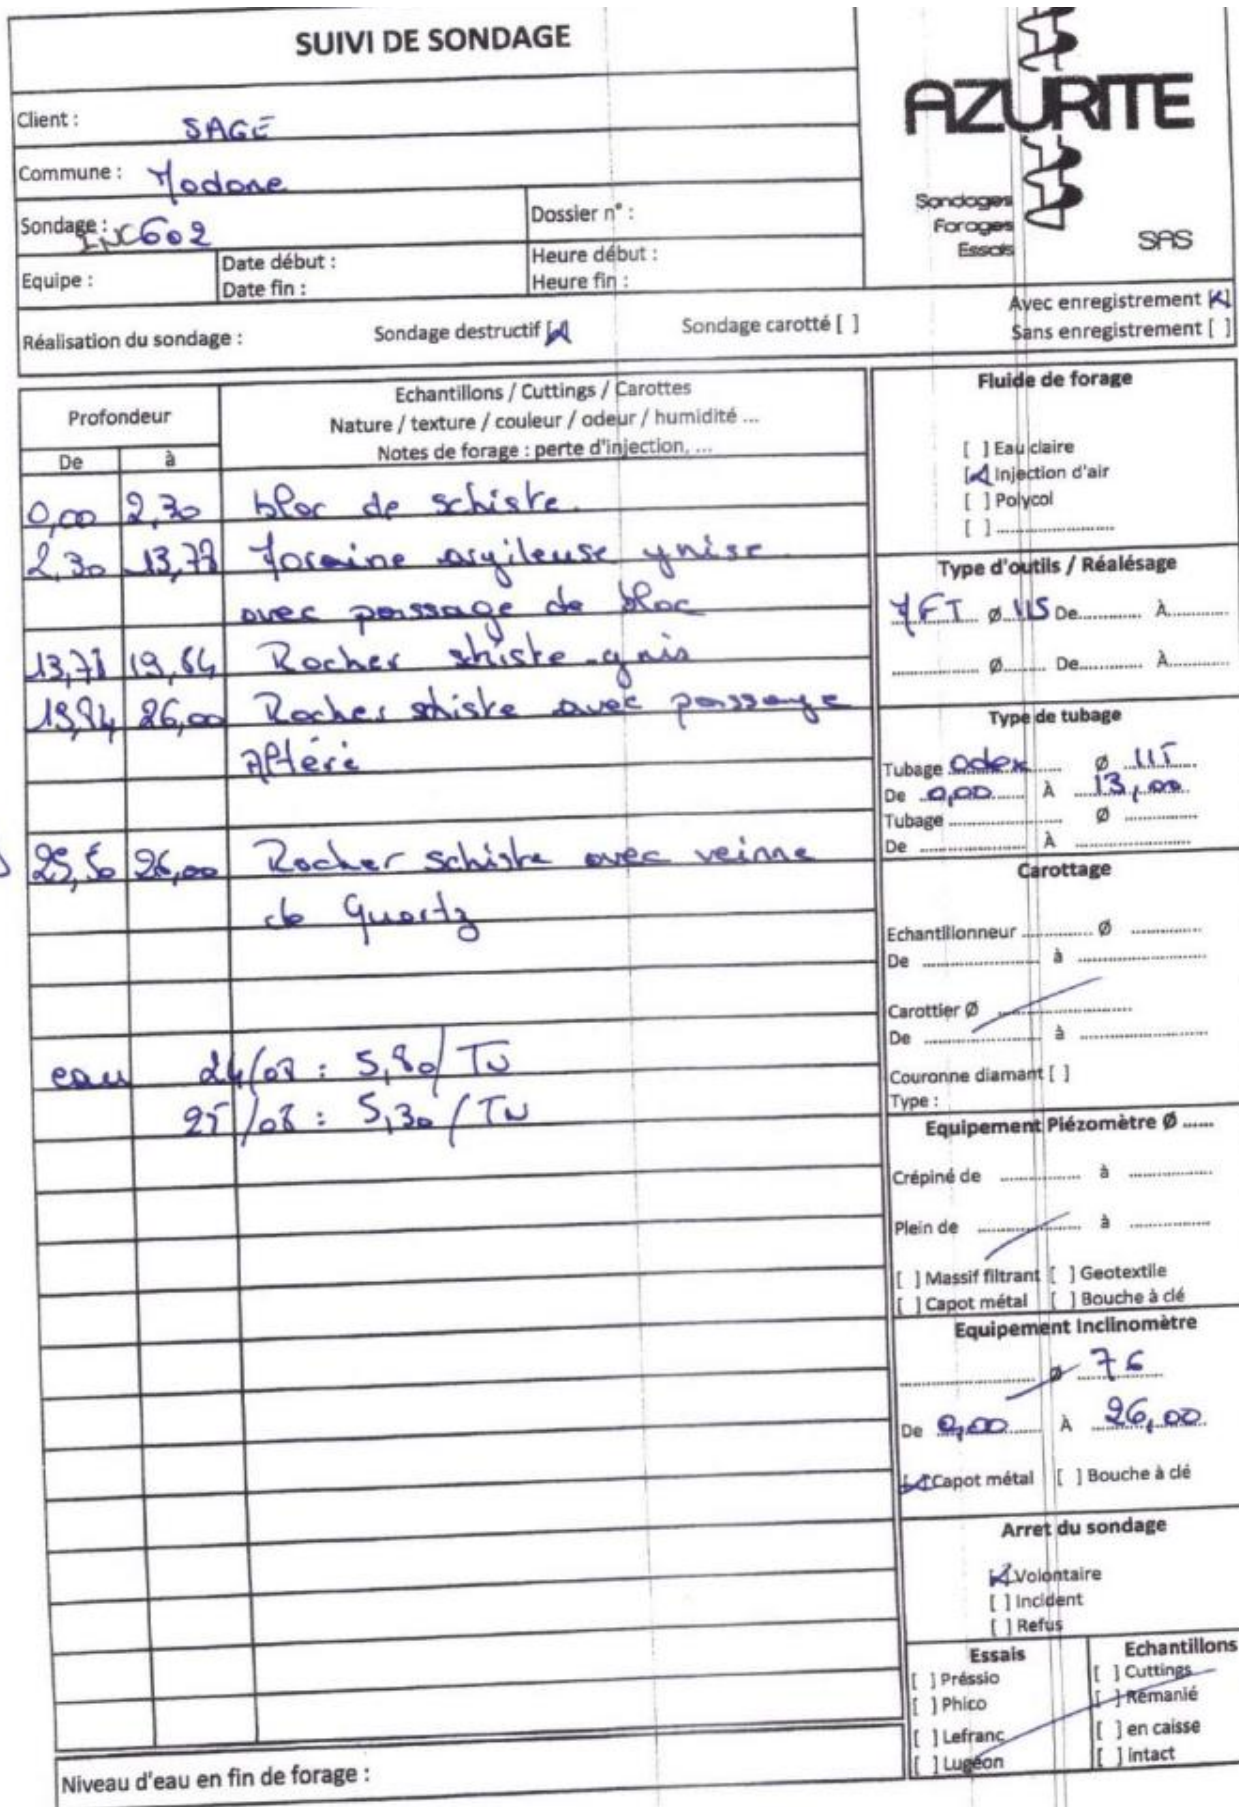 SUIVI DE SONDAGE
AZURITE
Sondages
Forages
Essais
SAS
Client : SAGE
Commune : Modane
Sondage : INC602
Dossier n° :
Equipe :
Date début :
Date fin :
Heure début :
Heure fin :
Réalisation du sondage : Sondage destructif [x] Sondage carotté [ ]
Avec enregistrement [x]
Sans enregistrement [ ]
Profondeur
De à
Echantillons / Cuttings / Carottes
Nature / texture / couleur / odeur / humidité ...
Notes de forage : perte d'injection, ...
0,00 2,30 bloc de schiste.
2,30 13,78 Moraine argileuse grise
avec passage de bloc
13,78 19,84 Rocher shiste gris
19,84 26,00 Rocher shiste avec passage
Altéré
25,50 26,00 Rocher schiste avec veinne
de Quartz
eau 24/08 : 5,80/TN
25/08 : 5,30/TN
Niveau d'eau en fin de forage :
Fluide de forage
[ ] Eau claire
[x] Injection d'air
[ ] Polycol
[ ] ........................
Type d'outils / Réalésage
MFT Ø 115 De............. À............
.................... Ø........ De............. À............
Type de tubage
Tubage Odex Ø 115
De 0,00 À 13,00
Tubage ........................ Ø ...............
De ........................ À ........................
Carottage
Echantillonneur .............. Ø ...............
De ........................ à ........................
Carottier Ø ............................
De ........................ à ........................
Couronne diamant [ ]
Type :
Equipement Piézomètre Ø ......
Crépiné de ................. à .................
Plein de ...................... à .................
[ ] Massif filtrant [ ] Geotextile
[ ] Capot métal [ ] Bouche à clé
Equipement Inclinomètre
............................ Ø 76
De 0,00 À 26,00
[x] Capot métal [ ] Bouche à clé
Arret du sondage
[x] Volontaire
[ ] Incident
[ ] Refus
Essais
[ ] Préssio
[ ] Phico
[ ] Lefranc
[ ] Lugéon
Echantillons
[ ] Cuttings
[ ] Rémanié
[ ] en caisse
[ ] intact